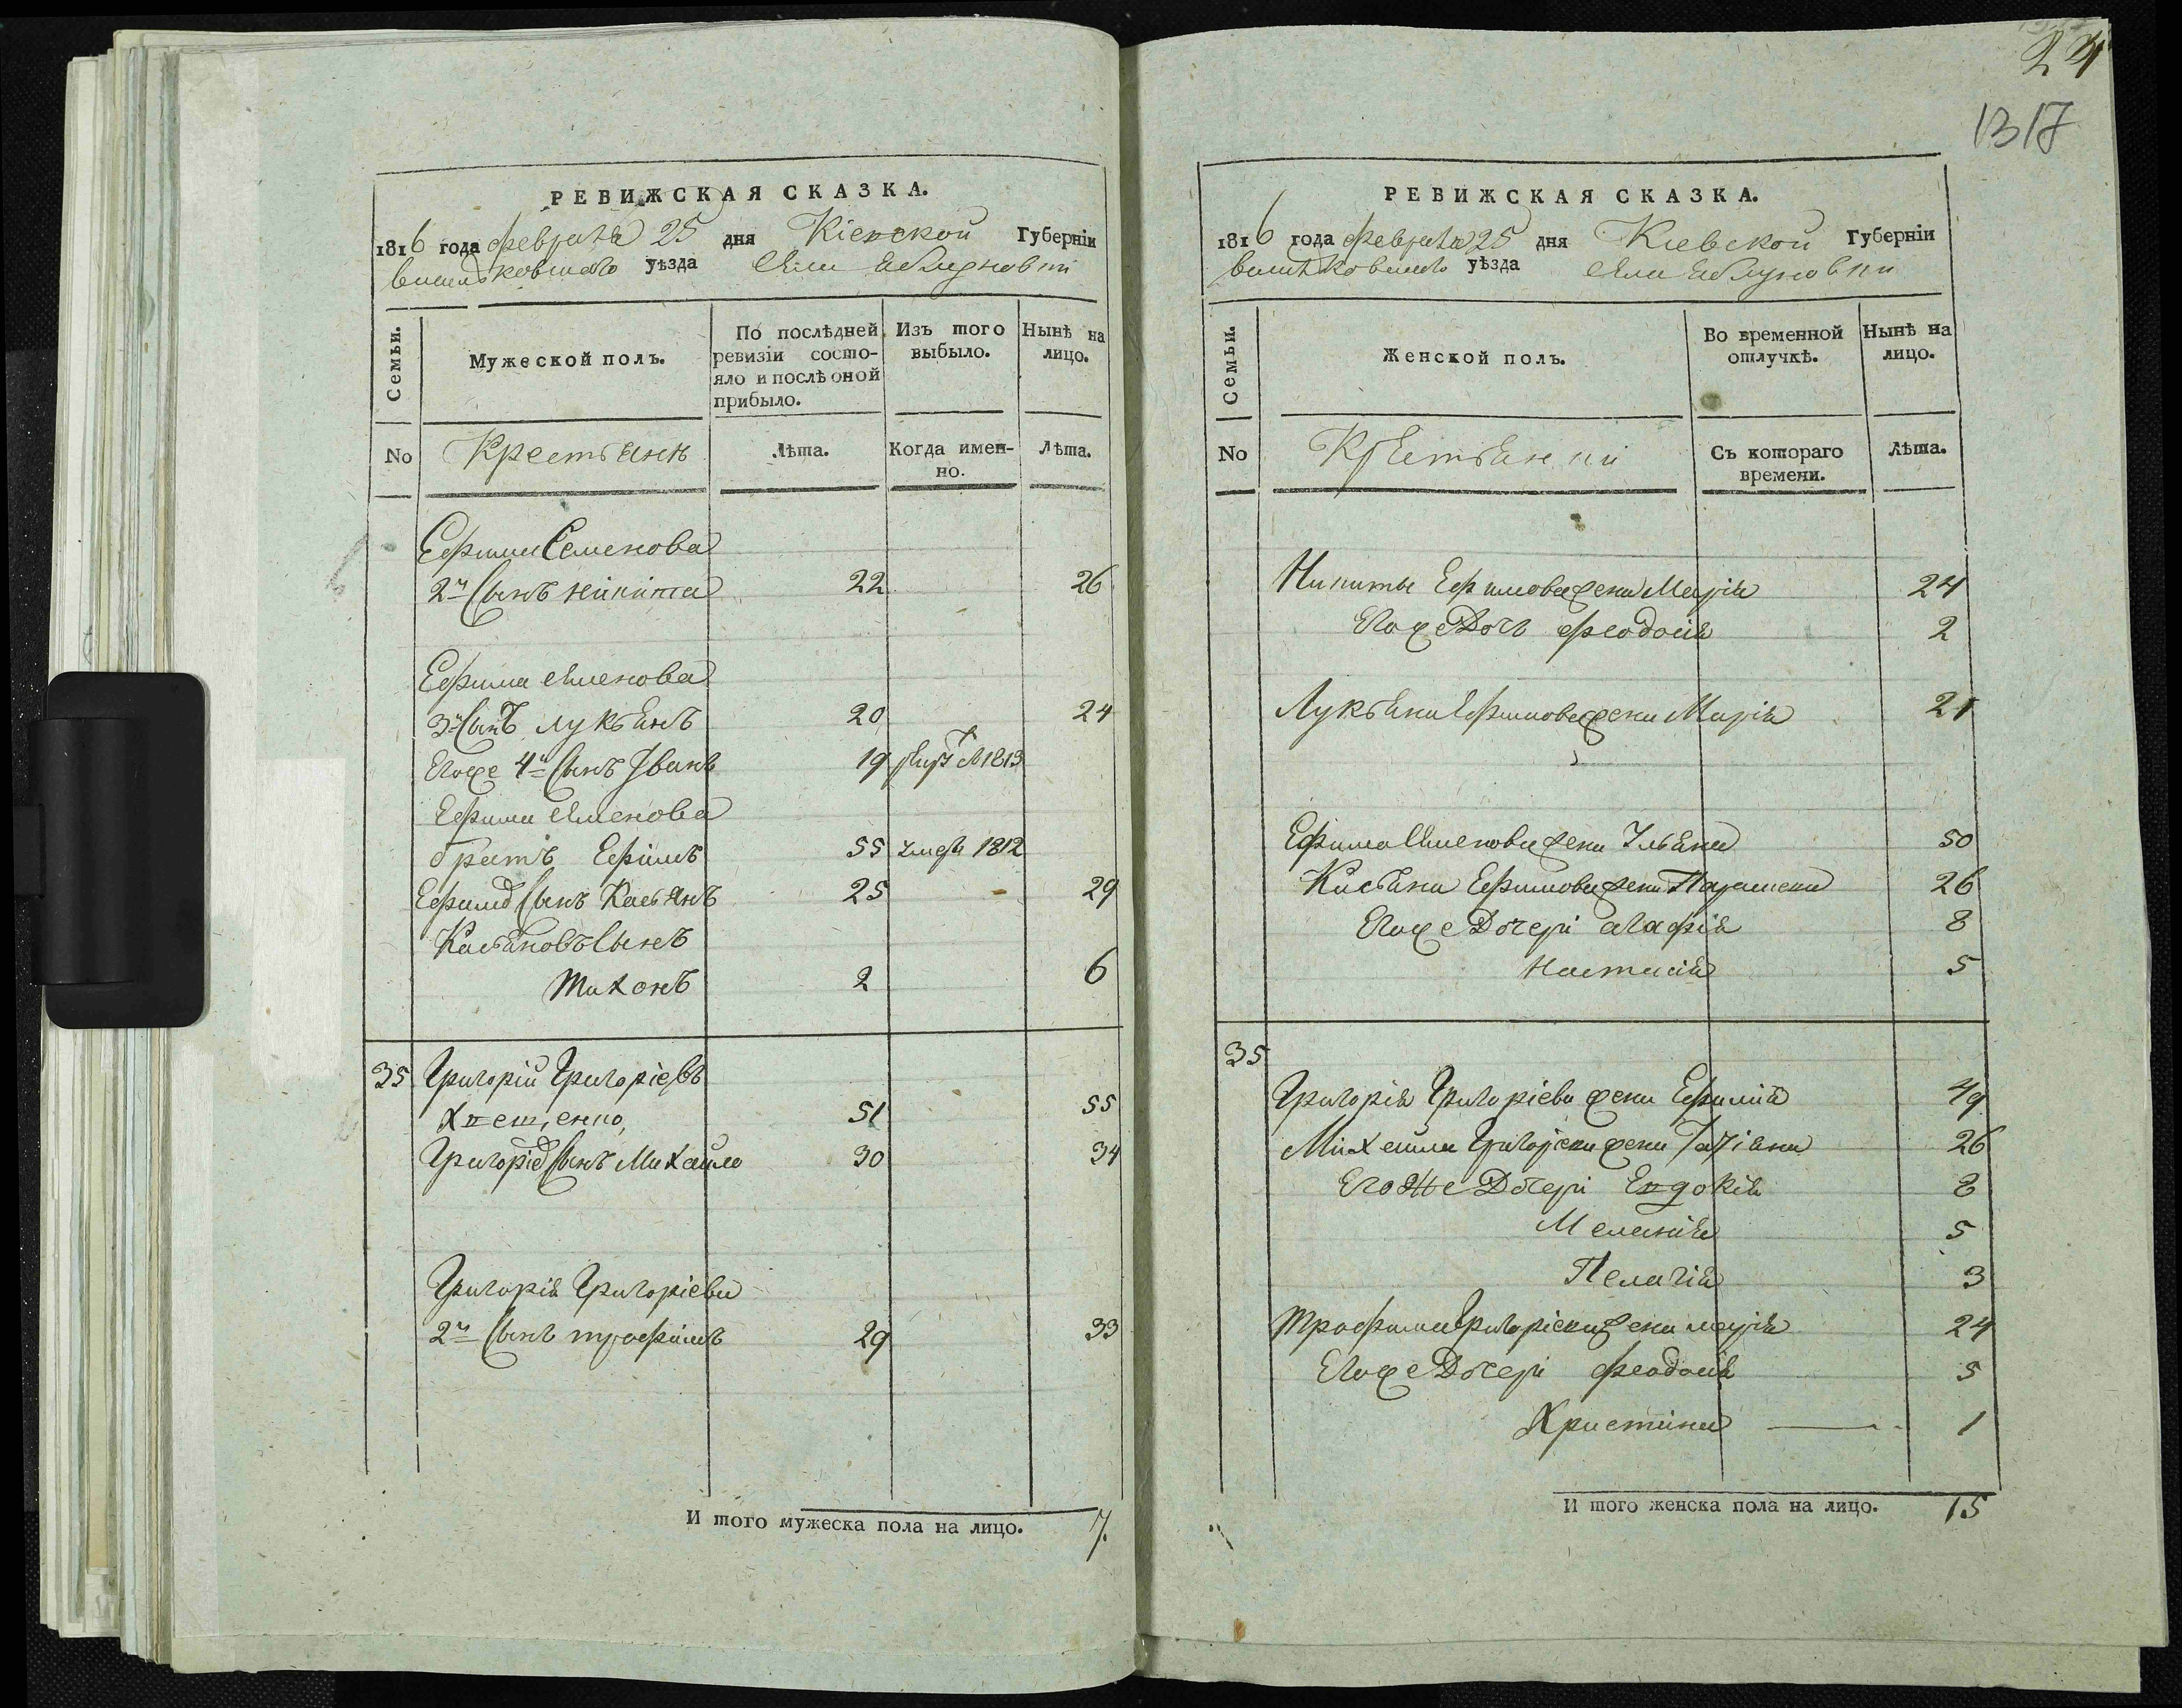 РЕВИЖСКАЯ СКАЗКА.
1816 года февраля 25 дня Кіевской Губерніи
васильковшаго уѣзда села Яблуновки
Семьи.
Мужеской полъ.
По послѣдней ревизіи состо-
яло и послѣ оной
прибыло.
Изъ того
выбыло.
Нынѣ на
лицо.
No
Крестьянѣ
Лѣта.
Когда имен-
но.
Лѣта.
Ефима Семенова
2й Сынъ никита 22 26
Ефима Семенова
3й Сынъ лукьянъ 20 24
Егоже 4й Сынъ Іванъ 19 1813
Ефима Семенова
братъ Ефімъ 55 умеръ 1812
Ефимов Сынъ Касьянъ 25 29
Касьяновъ Сынъ
тихонъ 2 6
35 Григорій Григоріевъ
51 55
Григоріев Сынъ Михайло 30 34
Григорія Григоріева
2й Сынъ трофімъ 29 33
И того мужеска пола на лицо. 7.
24
1317
РЕВИЖСКАЯ СКАЗКА.
1816 года февраля 25 дня Киевской Губерніи
васильковшаго уѣзда села Яблуновки
Семьи.
Женской полъ.
Во временной
отлучкѣ.
Нынѣ на
лицо.
No
Крестьянки
Съ котораго
времени.
Лѣта.
Никиты Ефимова жена Марія 24
Егоже Дочь феодосія 2
Лукьяна Ефимова жена Марія 21
Ефима Семенова жена Ульяна 50
Касьяна Ефимова жена Параскева 26
Егоже Дочери агафія 8
Настасія 5
35
Григорія Григоріева жена Ефимія 49
Михайла Григоріева жена Татіяна 26
Егоже Дочери Евдокія 8
Меланія 5
Пелагія 3
трофима Григоріева жена марія 24
Егоже Дочери феодосія 5
Христина 1
И того женска пола на лицо. 15